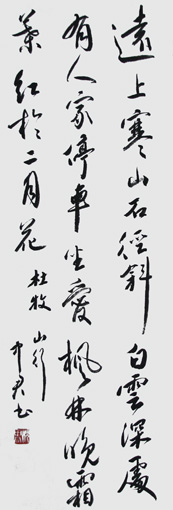 遠上寒山石徑斜白雲深處
有人家停車坐愛楓林晚霜
葉紅於二月花杜牧
山行